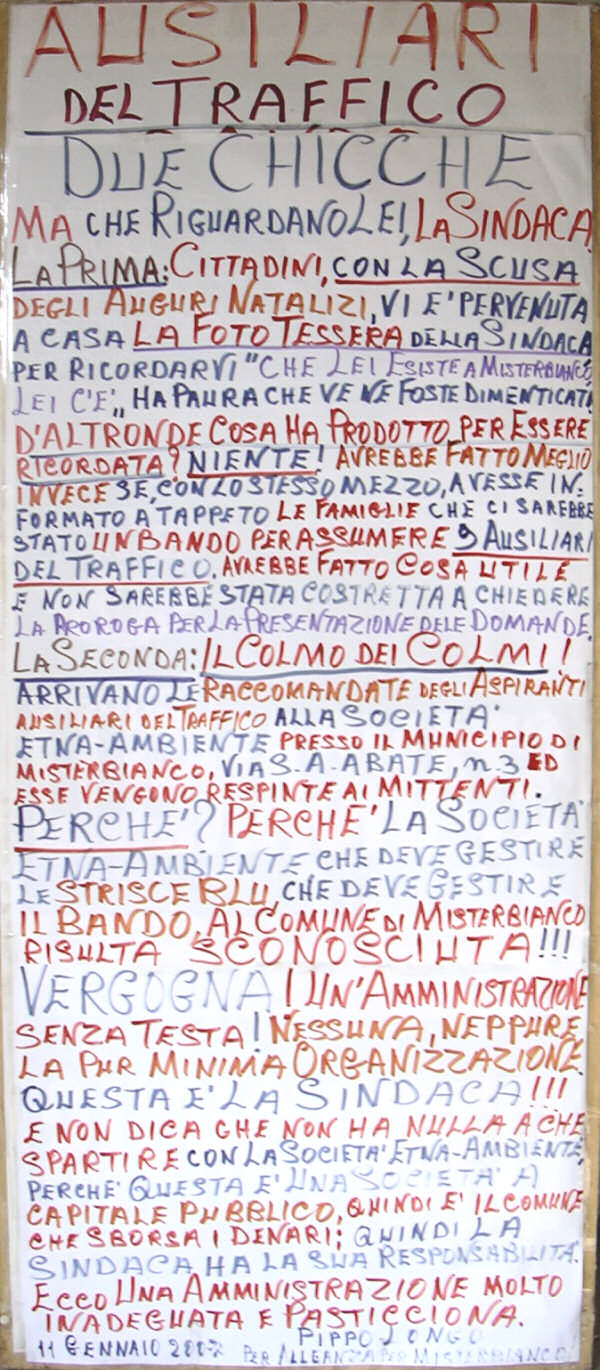 AUSILIARI
DEL TRAFFICO
DUE CHICCHE
MA CHE RIGUARDANO LEI, LA SINDACA.
LA PRIMA: CITTADINI, CON LA SCUSA
DEGLI AUGURI NATALIZI, VI E' PERVENUTA
A CASA LA FOTO TESSERA DELLA SINDACA
PER RICORDARVI "CHE LEI ESISTE A MISTERBIANCO,
LEI C'E'„ HA PAURA CHE VE NE FOSTE DIMENTICATI.
D'ALTRONDE COSA HA PRODOTTO PER ESSERE
RICORDATA? NIENTE! AVREBBE FATTO MEGLIO
INVECE SE, CON LO STESSO MEZZO, AVESSE IN=
FORMATO A TAPPETO LE FAMIGLIE CHE CI SAREBBE
STATO UN BANDO PER ASSUMERE 9 AUSILIARI
DEL TRAFFICO. AVREBBE FATTO COSA UTILE
E NON SAREBBE STATA COSTRETTA A CHIEDERE
LA PROROGA PER LA PRESENTAZIONE DELE DOMANDE.
LA SECONDA: IL COLMO DEI COLMI!
ARRIVANO LE RACCOMANDATE DEGLI ASPIRANTI
AUSILIARI DEL TRAFFICO ALLA SOCIETA'
ETNA-AMBIENTE PRESSO IL MUNICIPIO DI
MISTERBIANCO, VIA S. A. ABATE, n. 3 ED
ESSE VENGONO RESPINTE AI MITTENTI.
PERCHE'? PERCHE' LA SOCIETA'
ETNA-AMBIENTE CHE DEVE GESTIRE
LE STRISCE BLU, CHE DEVE GESTIRE
IL BANDO, AL COMUNE DI MISTERBIANCO
RISULTA SCONOSCIUTA!!!
VERGOGNA! UN'AMMINISTRAZIONE
SENZA TESTA! NESSUNA, NEPPURE
LA PUR MINIMA ORGANIZZAZIONE.
QUESTA E' LA SINDACA!!!
E NON DICA CHE NON HA NULLA A CHE
SPARTIRE CON LA SOCIETA' ETNA-AMBIENTE,
PERCHE' QUESTA E' UNA SOCIETA' A
CAPITALE PUBBLICO, QUINDI E' IL COMUNE
CHE SBORSA I DENARI; QUINDI LA
SINDACA HA LA SUA RESPONSABILITA'.
ECCO UNA AMMINISTRAZIONE MOLTO
INADEGUATA E PASTICCIONA.
PIPPO LONGO
11 GENNAIO 2007 PER ALLEANZA PER MISTERBIANCO